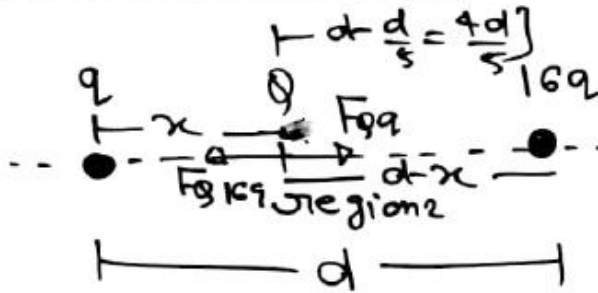 d - d/5 = 4d/5]
q Q 16q
x F_Qq
F_Q16q d-x
region 2
d